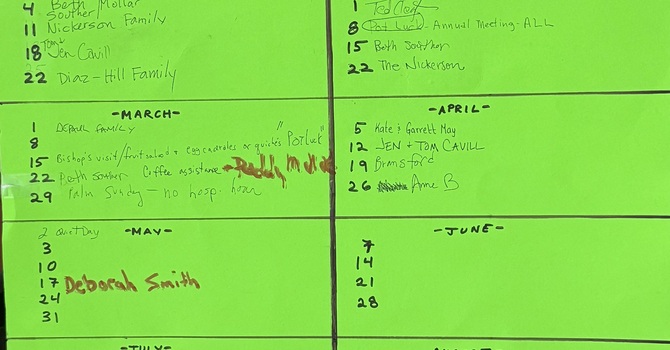 4 Beth Mollar
Souther
11 Nickerson Family
18 Tom & Jen Cavill
22 Diaz-Hill Family
1
8 Pot Luck - Annual Meeting - ALL
15 Beth Souther
22 The Nickerson
-MARCH-
1 DEPAUL FAMILY
8
15 Bishop's visit/fruit salad + egg casseroles or quiches "Potluck"
22 Beth Souther Coffee assistance
29 Palm Sunday - no hosp. hour
-APRIL-
5 Kate & Garrett May
12 JEN + TOM CAVILL
19 Bransford
26 Anne B
-MAY-
2 Quiet Day
3
10
17 Deborah Smith
24
31
-JUNE-
7
14
21
28
-JULY-